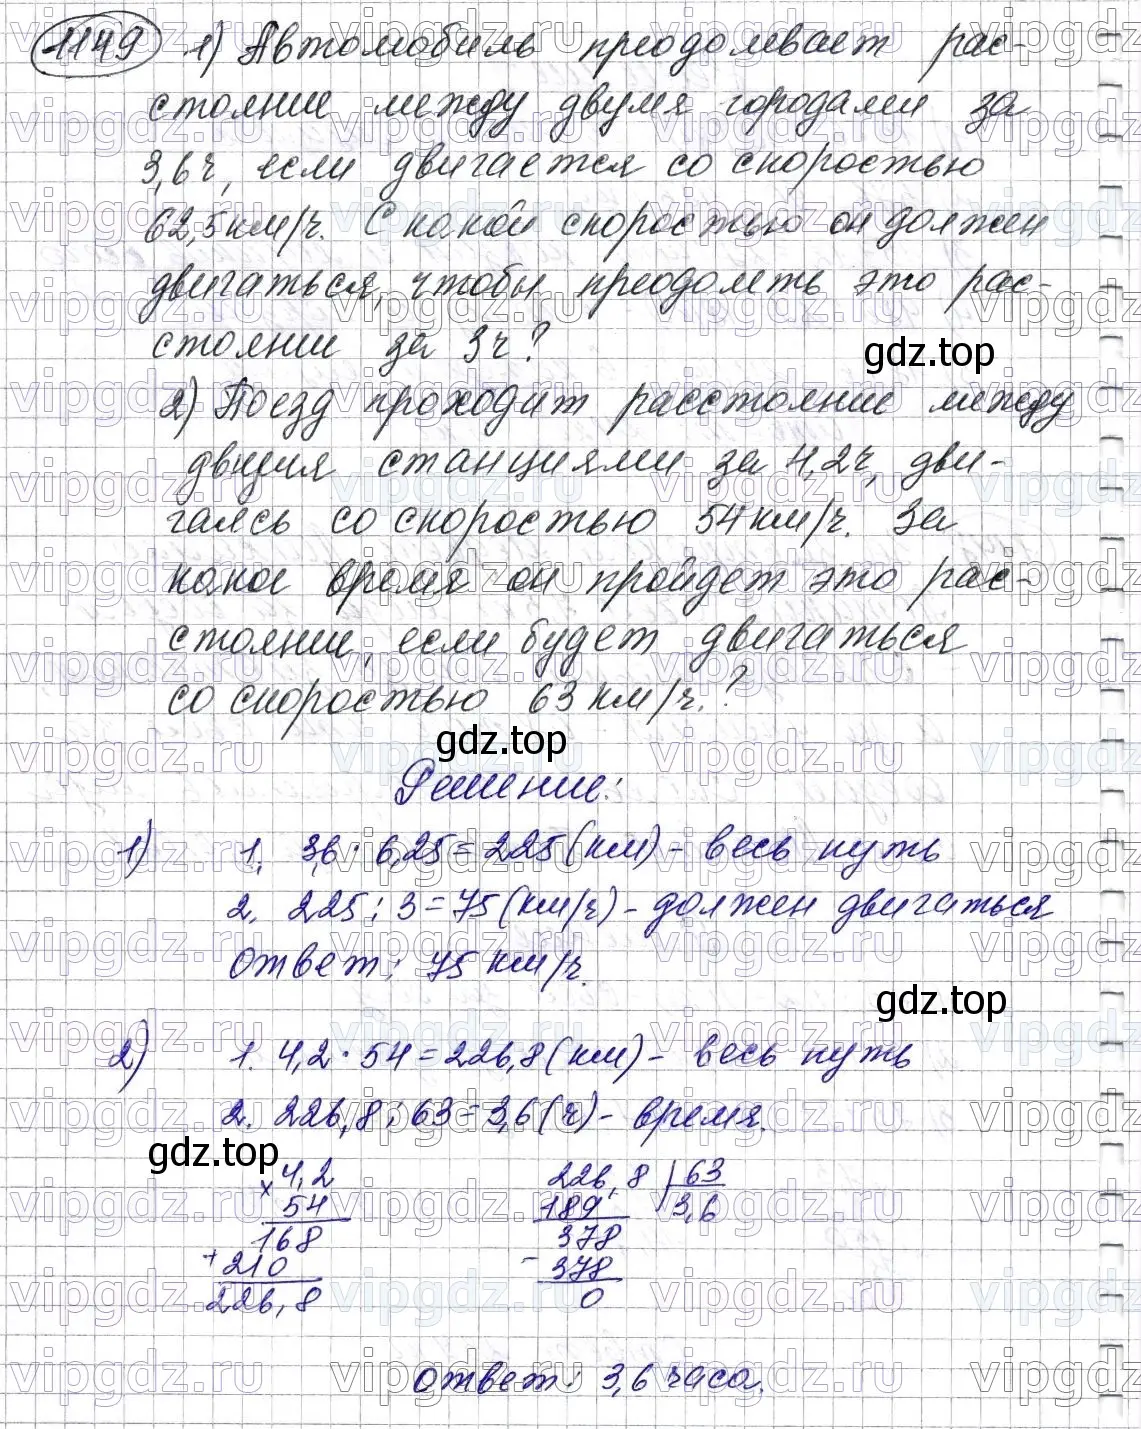 1149 1) Автомобиль преодолевает рас-
стояние между двумя городами за
3,6 ч, если двигается со скоростью
62,5 км/ч. С какой скоростью он должен
двигаться, чтобы преодолеть это рас-
стояние за 3 ч?
gdz.top
2) Поезд проходит расстояние между
двумя станциями за 4,2 ч, дви-
гаясь со скоростью 54 км/ч. За
какое время он пройдет это рас-
стояние, если будет двигаться
со скоростью 63 км/ч.?
gdz.top
Решение:
1) 1. 3,6 · 6,25 = 225 (км) - весь путь
2. 225 : 3 = 75 (км/ч) - должен двигаться
Ответ: 75 км/ч.
gdz.top
2) 1. 4,2 · 54 = 226,8 (км) - весь путь
2. 226,8 : 63 = 3,6 (ч) - время.
gdz.top
× 4,2 226,8 | 63
54 189 3,6
168 378
+ 210 - 378
226,8 0
Ответ: 3,6 часа.